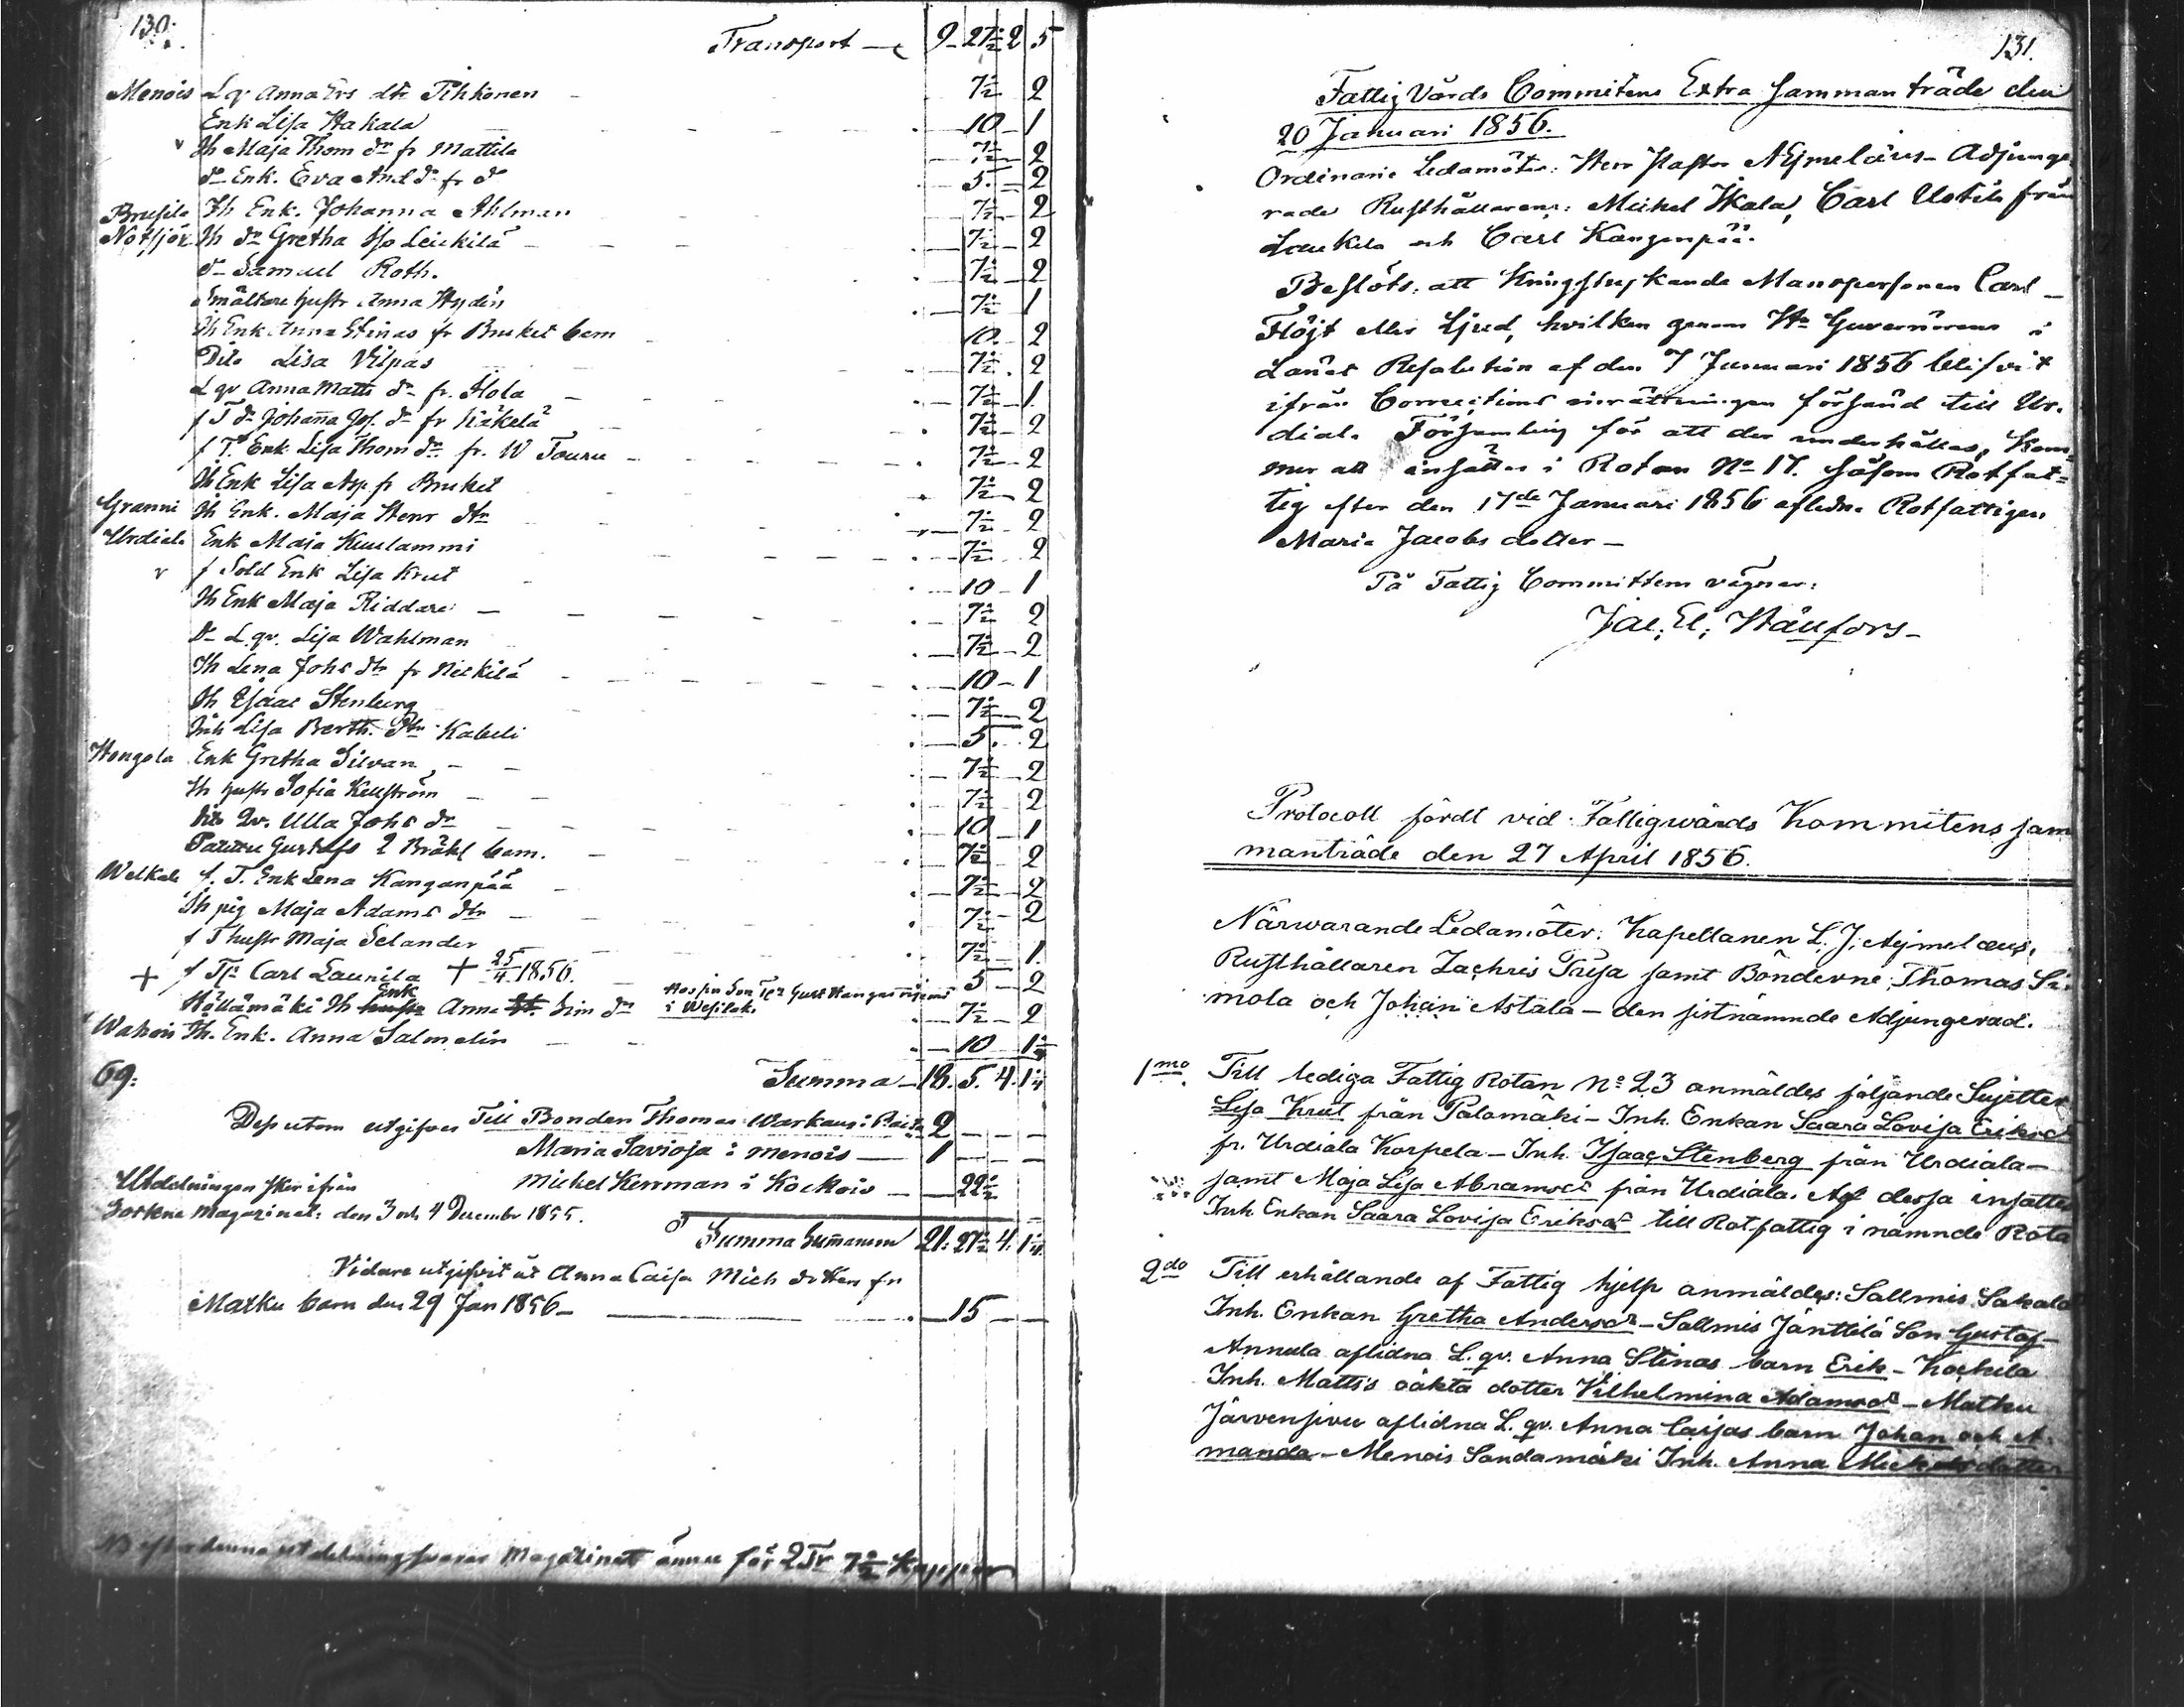 130.
Transport — 9 – 27½ 2 5
Menois L qv Anna Ers dtr Tihkonen – 7½ 2
Enk Lisa Hakala – 10 – 1
v Ih Maja Thom dr fr Mattila – 7½ – 2
do Enk. Eva And dr fr do – 5. – 2
Brusila Ih Enk. Johanna Ahlman – 7½ – 2
Notsjö Ih do Gretha Leukilä – 7½ – 2
do Samuel Roth. – 7½ – 2
Smältare hustr Anna Hydén – 7½ 1
Ih Enk Anna Stinas fr Bruket barn 10. – 2
Dito Lisa Vilpas 7½ . 2
L qv Anna Matts dr fr. Hola – 7½ – 1
f T dr Johanna Jos. dr fr Käkelä – 7½ – 2
f T. Enk Lisa Thom dr. fr. W Touru – 7½ – 2
Ih Enk Lisa Asp fr Bruket 7½ – 2
Granni Ih Enk. Maja Henr dtr 7½ – 2
Urdiala Enk Maja Kuulammi – 7½ . 2
v f Sold Enk Lisa Krut – 10 – 1
Ih Enk Maja Riddare – 7½ 2
Do L. qv. Lisa Wahlman 7½ – 2
Ih Lena Johs dtr fr Neikilä – 10 – 1
Ih Isaac Stenberg – 7½ – 2
Inh Lisa Berth. dtr Kabeli – 5. . 2
Hongola Enk Gretha Silvan – 7½ – 2
Ih hustr Sofia Kellström – 7½ – 2
Dito Qv. Ulla Johs dr – 10 – 1
Gustafs 2 barn. – 7½ 2
Welkala f. T. Enk Lena Kanganpää – 7½ – 2
Ih pig Maja Adams dtr – 7½ – 2
f T hustr Maja Selander 7½ – 1.
+ f Tr Carl Launila + 25/4 1856. – 5 – 2
Höllämäki Ih hustr Enk Anna Sim dr – 7½ – 2
Hos sin Son Gust
i Wesilaks
Ih. Enk. Anna Salmelin – 10 1¼
69: Summa – 18. 5. 4. 1¼
Dessutom utgifves Till Bonden Thomas Warkaus i 2 – – –
Maria Savioja i Menois — 1 – – –
Utdelningen sker ifrån Michel Herrman i Kockois — 22½
Sockne Magazinet: den 3 och 4 December 1855.
Summa Summarum 21: 27½ 4. 1¼
Vidare utgifvit åt Anna Caisa Mich dotters fr
Matku barn den 29 Jan 1856 – 15 – –
NB efter denna utdelning svarar Magazinet ännu för 2 Tr 7½ Kappar
131.
Fattig Vårds Commitens Extra Samman träde den
20 Januari 1856.
Ordinarie Ledamöter: Herr Pastor Ajmelæus – Adjunge
rade Rusthållarene: Mickel Ikala, Carl Ustila från
Laukela och Carl Kangenpää.
Beslöts: att Kringstrykande Manspersonen Carl –
Flöjt eller Ljud, hvilken genom Hr Guvernörens i
Länet Resolution af den 7 Januari 1856 blifvit
ifrån Corrections inrättningen försänd till Ur-
diala Församling för att der underhållas, Kom-
mer att insättas i Rotan No 17. såsom Rotfat-
tig efter den 17de Januari 1856 aflidna Rotfattigen
Maria Jacobs dotter –
På Fattig Committens vägnar:
Jac. El. Häufors –
Protocoll fördt vid Fattigwårds Kommitens sam
manträde den 27 April 1856.
Närwarande Ledamöter: Kapellanen L. J. Ajmelæus,
Rusthållaren Zachris Prija samt Bönderne Thomas Si-
mola och Johan Astala – den sistnämnde Adjungerad.
1mo Till lediga Fattig Rotan No 23 anmäldes följande Sujetter
Lisa Krut från Palomäki – Inh. Enkan Saara Lovisa Eriksdr
fr. Urdiala Korpela – Inh. Isaac Stenberg från Urdiala –
samt Maja Lisa Abramsdr från Urdiala. Af dessa insattes
Inh Enkan Saara Lovisa Eriksdr till Rotfattig i nämnde Rota
2do Till erhållande af Fattig hjelp anmäldes: Sallmis Sakala
Inh. Enkan Gretha Andersdr – Sallmis Jänttilä Son Gustaf –
Annula aflidna L. qv. Anna Stinas barn Erik – Kockila
Inh. Matts's oäkta dotter Vilhelmina Adamsdr – Matku
Järvensivu aflidna L. qv. Anna Caijas barn Johan och A-
manda – Menois Sandamäki Inh. Anna Mickelsdotter